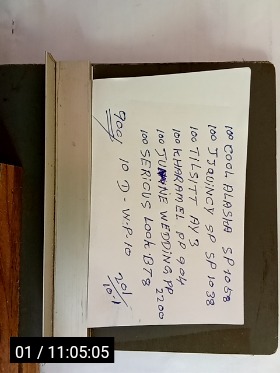 100 COOL ALASHA SP 1058
100 JJQUINCY SP SP 1038
100 TILSITT AY 3
100 KHARAMEL PP 904
100 JUNNE WEDDING PP 2200
100 SERIOUS LOOK BT 8
900/ 10 D - W.P. 10
01 / 11:05:05